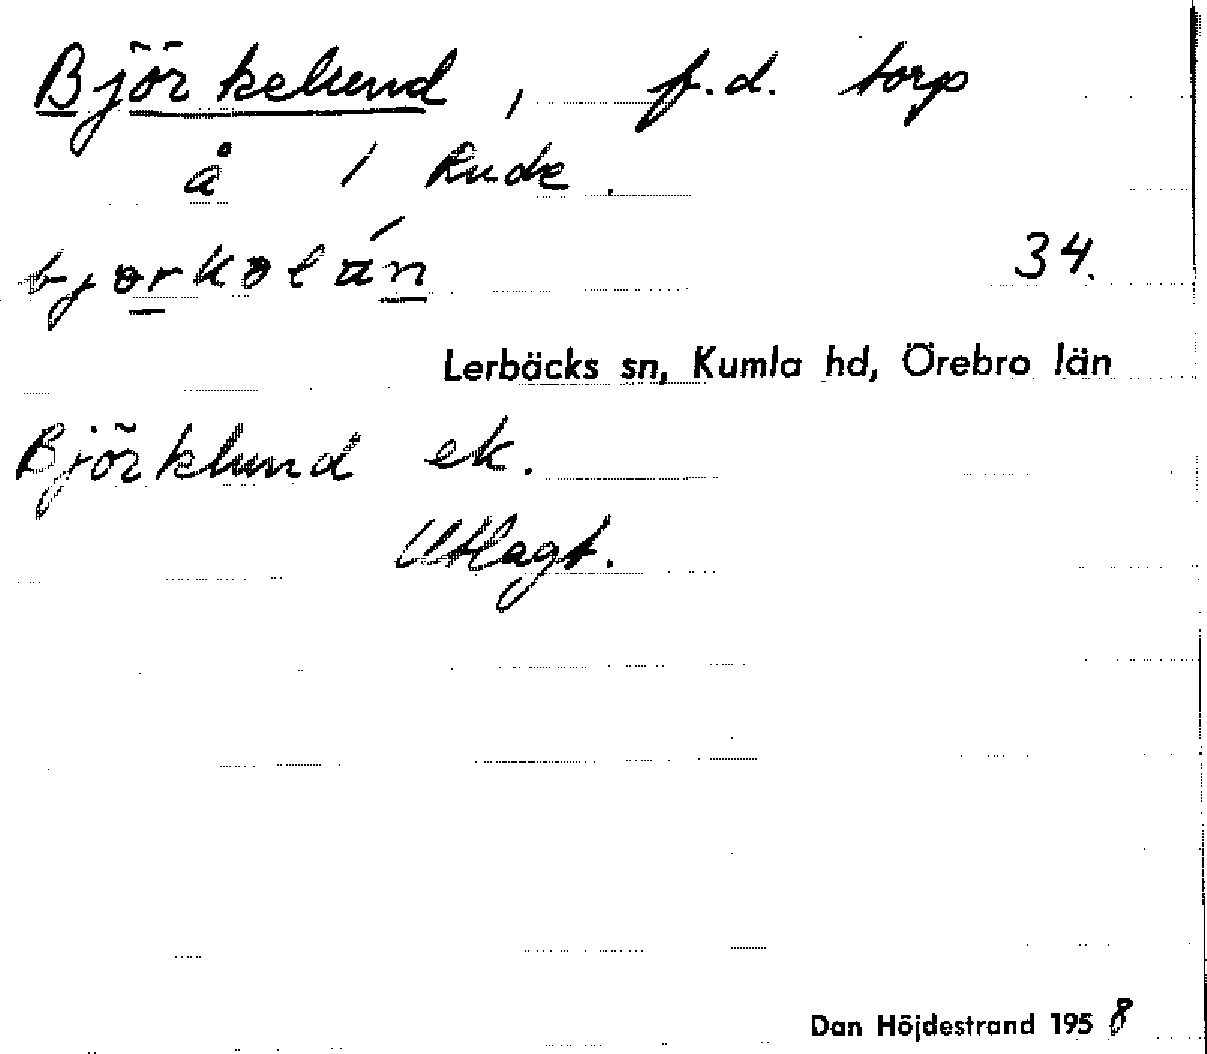 Björkelund, f.d. torp
å 1 Rude.
34.
Lerbäcks sn, Kumla hd, Örebro län
Björklund ek.
Utlagt.
Dan Höjdestrand 1958